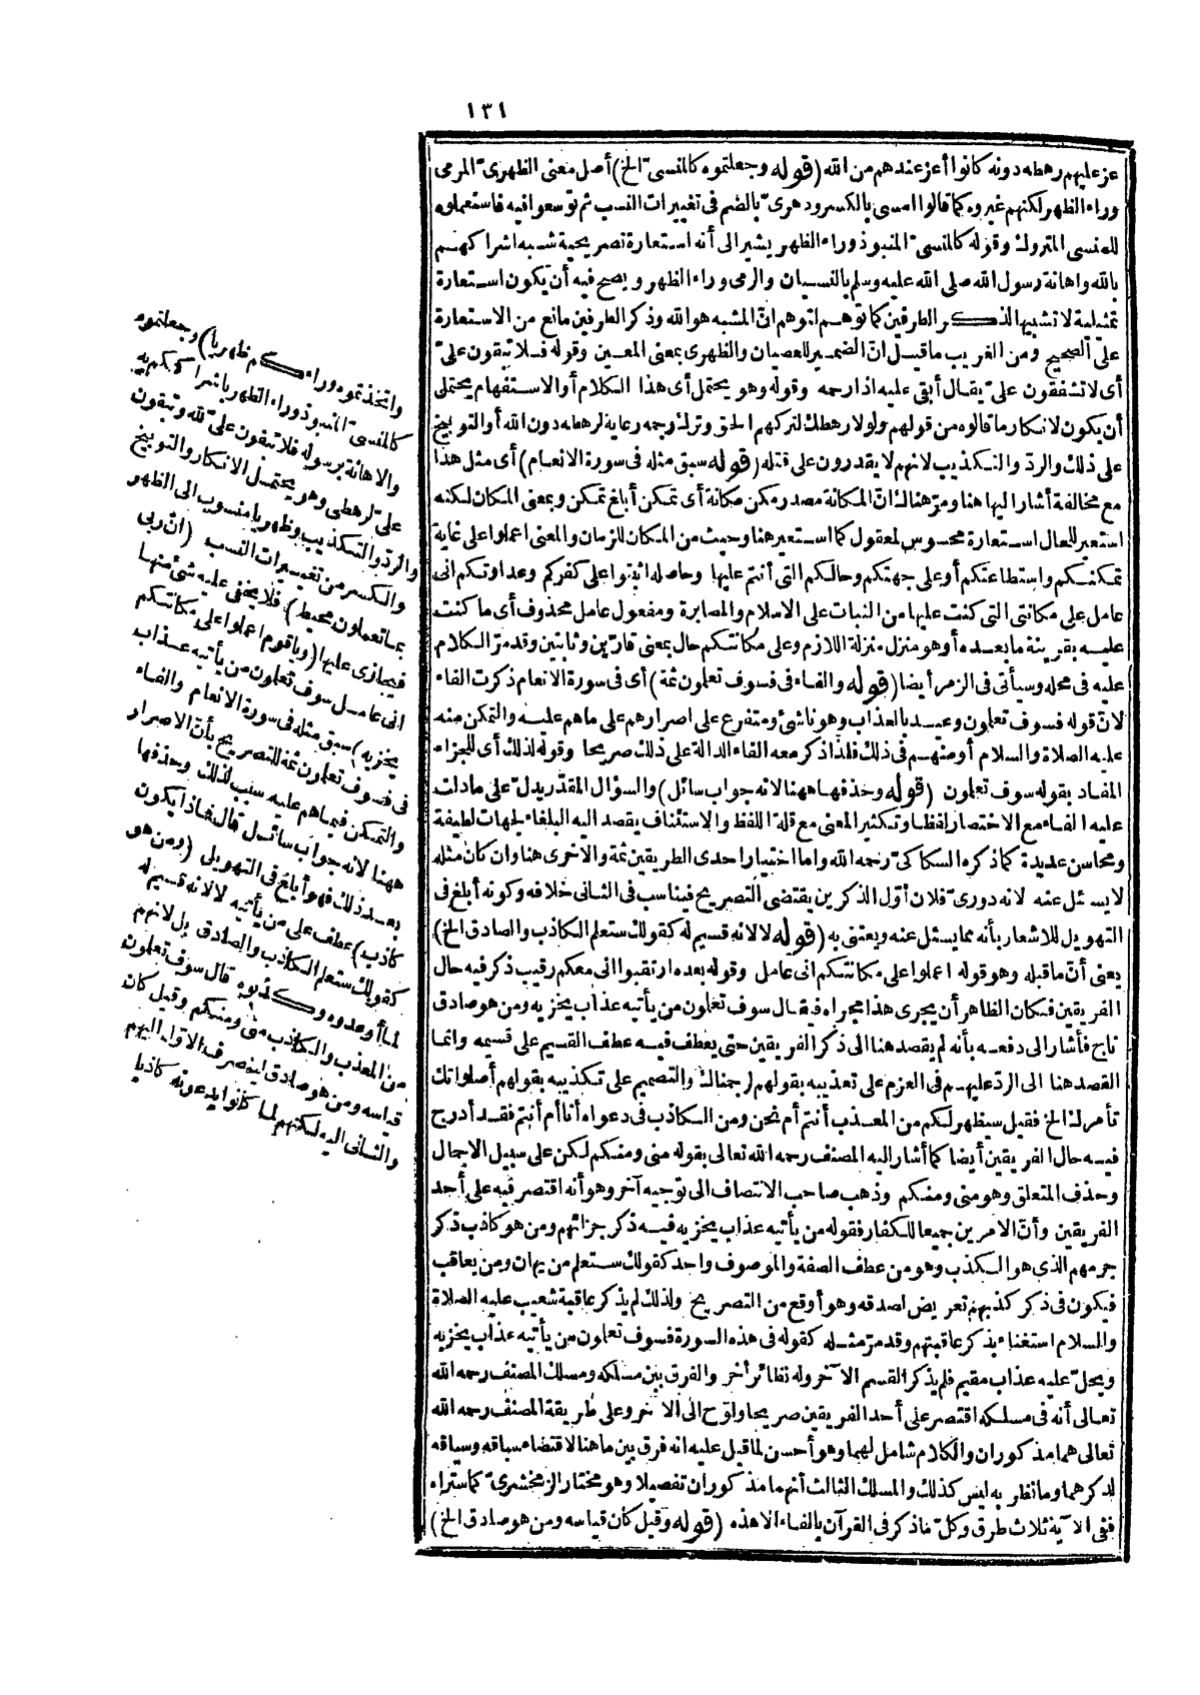 ١٣١
عز عليهم رهطه دونه كانوا أعز عندهم من الله (قوله وجعلتموه كالمنسىّ الخ) أصل معنى الظهرىّ المرمى
وراء الظهر لكنهم غيروه كما قالوا امسى بالكسر ودهرىّ بالضم فى تغييرات النسب ثم توسعوا فيه فاستعملوه
للمنسى المتروك وقوله كالمنسىّ المنبوذ وراء الظهر يشير الى أنه استعارة تصريحية شبه اشراكهم
بالله واهانة رسول الله صلى الله عليه وسلم بالنسيان والرمى وراء الظهر ويصح فيه أن يكون استعارة
تمثيلية لا تشبيها لذكر الطرفين كما توهم لتوهم انّ المشبه هو الله وذكر الطرفين مانع من الاستعارة
على الصحيح ومن الغريب ما قيل انّ الضمير للعصيان والظهرى بمعنى المعين وقوله فلا تبقون علىّ
أى لا تشفقون علىّ يقال أبقى عليه اذا رحمه وقوله وهو يحتمل أى هذا الكلام أو الاستفهام يحتمل
أن يكون لانكار ما قالوه من قولهم ولولا رهطك لتركهم الحق وترك وجهه رعاية لرهطه دون الله أو التوبيخ
على ذلك والردّ والتكذيب لانهم لا يقدرون على قتله (قوله سبق مثله فى سورة الانعام) أى مثل هذا
مع مخالفة أشار اليها هنا ومرّ هنالك انّ المكانة مصدر مكن مكانة أى تمكن أبلغ تمكن وبمعنى المكان لكنه
استعير للحال استعارة محسوس لمعقول كما استعير هنا وحيث من المكان للزمان والمعنى اعملوا على غاية
تمكنكم واستطاعتكم أو على جهتكم وحالكم التى أنتم عليها وحاصله اثبتوا على كفركم وعداوتكم انى
عامل على مكانتى التى كنت عليها من الثبات على الاسلام والمصابرة ومفعول عامل محذوف أى ما كنت
عليه بقرينة ما بعده أو هو منزل منزلة اللازم وعلى مكانتكم حال بمعنى قارّين وثابتين وقد مرّ الكلام
عليه فى محله وسيأتى فى الزمر أيضا (قوله والفاء فى فسوف تعلمون ثمة) أى فى سورة الانعام ذكرت الفاء
لانّ قوله فسوف تعلمون وعيد بالعذاب وهو ناشئ ومتفرع على اصرارهم على ما هم عليه والتمكن منه
عليه الصلاة والسلام أو منهم فى ذلك فلذا ذكر معه الفاء الدالة على ذلك صريحا وقوله لذلك أى للجزاء
المفاد بقوله سوف تعلمون (قوله وحذفها ههنا لانه جواب سائل) والسؤال المقدّر يدل على ما دلت
عليه الفاء مع الاختصار لفظا وتكثير المعنى مع قلة اللفظ والاستئناف يقصد اليه البلغاء لجهات لطيفة
ومحاسن عديدة كما ذكره السكاكىّ رحمه الله واما اختيار احدى الطريقين ثمة والاخرى هنا وان كان مثله
لا يسئل عنه لانه دورىّ فلان أوّل الذكرين يقتضى التصريح فيناسب فى الثانى خلافه وكونه أبلغ فى
التهويل للاشعار بأنه مما يسئل عنه ويعتنى به (قوله لا لانه قسيم له كقولك ستعلم الكاذب والصادق الخ)
يعنى أنّ ما قبله وهو قوله اعملوا على مكانتكم انى عامل وقوله بعده ارتقبوا انى معكم رقيب ذكر فيه حال
الفريقين فكان الظاهر أن يجرى هذا مجراه فيقال سوف تعلمون من يأتيه عذاب يخزيه ومن هو صادق
ناج فأشار الى دفعه بأنه لم يقصد هنا الى ذكر الفريقين حتى يعطف فيه عطف القسيم على قسيمه وانما
القصد هنا الى الردّ عليهم فى العزم على تعذيبه بقولهم لرجمناك والتصميم على تكذيبه بقولهم أصلواتك
تأمرك الخ فقيل سيظهر لكم من المعذب أنتم أم نحن ومن الكاذب فى دعواه أنا أم أنتم فقد أدرج
فيه حال الفريقين أيضا كما أشار اليه المصنف رحمه الله تعالى بقوله منى ومنكم لكن على سبيل الاجمال
وحذف المتعلق وهو منى ومنكم وذهب صاحب الانتصاف الى توجيه آخر وهو أنه اقتصر فيه على أحد
الفريقين وأنّ الامرين جميعا للكفار فقوله من يأتيه عذاب يخزيه فيه ذكر جزائهم ومن هو كاذب ذكر
جرمهم الذى هو الكذب وهو من عطف الصفة والموصوف واحد كقولك ستعلم من يهان ومن يعاقب
فيكون فى ذكر كذبهم تعريض لصدقه وهو أوقع من التصريح ولذلك لم يذكر عاقبة شعيب عليه الصلاة
والسلام استغناء بذكر عاقبتهم وقد مرّ مثله كقوله فى هذه السورة فسوف تعلمون من يأتيه عذاب يخزيه
ويحلّ عليه عذاب مقيم فلم يذكر القسم الآخر وله نظائر أخر والفرق بين مسلكه ومسلك المصنف رحمه الله
تعالى أنه فى مسلكه اقتصر على أحد الفريقين صريحا ولوّح الى الآخر وعلى طريقة المصنف رحمه الله
تعالى هما مذكوران والكلام شامل لهما وهو أحسن لما قيل عليه انه فرق بين ما هنا لاقتضاء سباقه وسياقه
لذكرهما وما نظر به ليس كذلك والمسلك الثالث أنهما مذكوران تفصيلا وهو مختار الزمخشرىّ كما ستراه
ففى الآية ثلاث طرق وكلّ ما ذكر فى القرآن بالفاء الا هذه (قوله وقيل كان قياسه ومن هو صادق الخ)
واتخذتموه وراءكم ظهريا) وجعلتموه
كالمنسىّ المنبوذ وراء الظهر باشراككم به
والاهانة برسوله فلا تبقون علىّ لله وتبقون
علىّ لرهطى وهو يحتمل الانكار والتوبيخ
والردّ والتكذيب وظهريا منسوب الى الظهر
والكسر من تغييرات النسب (ان ربى
بما تعملون محيط) فلا يخفى عليه شئ منها
فيجازى عليها (ويا قوم اعملوا على مكانتكم
انى عامل سوف تعلمون من يأتيه عذاب
يخزيه) سبق مثله فى سورة الانعام والفاء
فى فسوف تعلمون ثمة للتصريح بأن الاصرار
والتمكن فيما هم عليه سبب لذلك وحذفها
ههنا لانه جواب سائل قال فماذا يكون
بعد ذلك فهو أبلغ فى التهويل (ومن هو
كاذب) عطف على من يأتيه لا لانه قسيم له
كقولك ستعلم الكاذب والصادق بل لانهم
لما أوعدوه وكذبوه قال سوف تعلمون
من المعذب والكاذب منى ومنكم وقيل كان
قياسه ومن هو صادق لينصرف الاوّل اليهم
والثانى اليه لكنهم لما كانوا يدعونه كاذبا